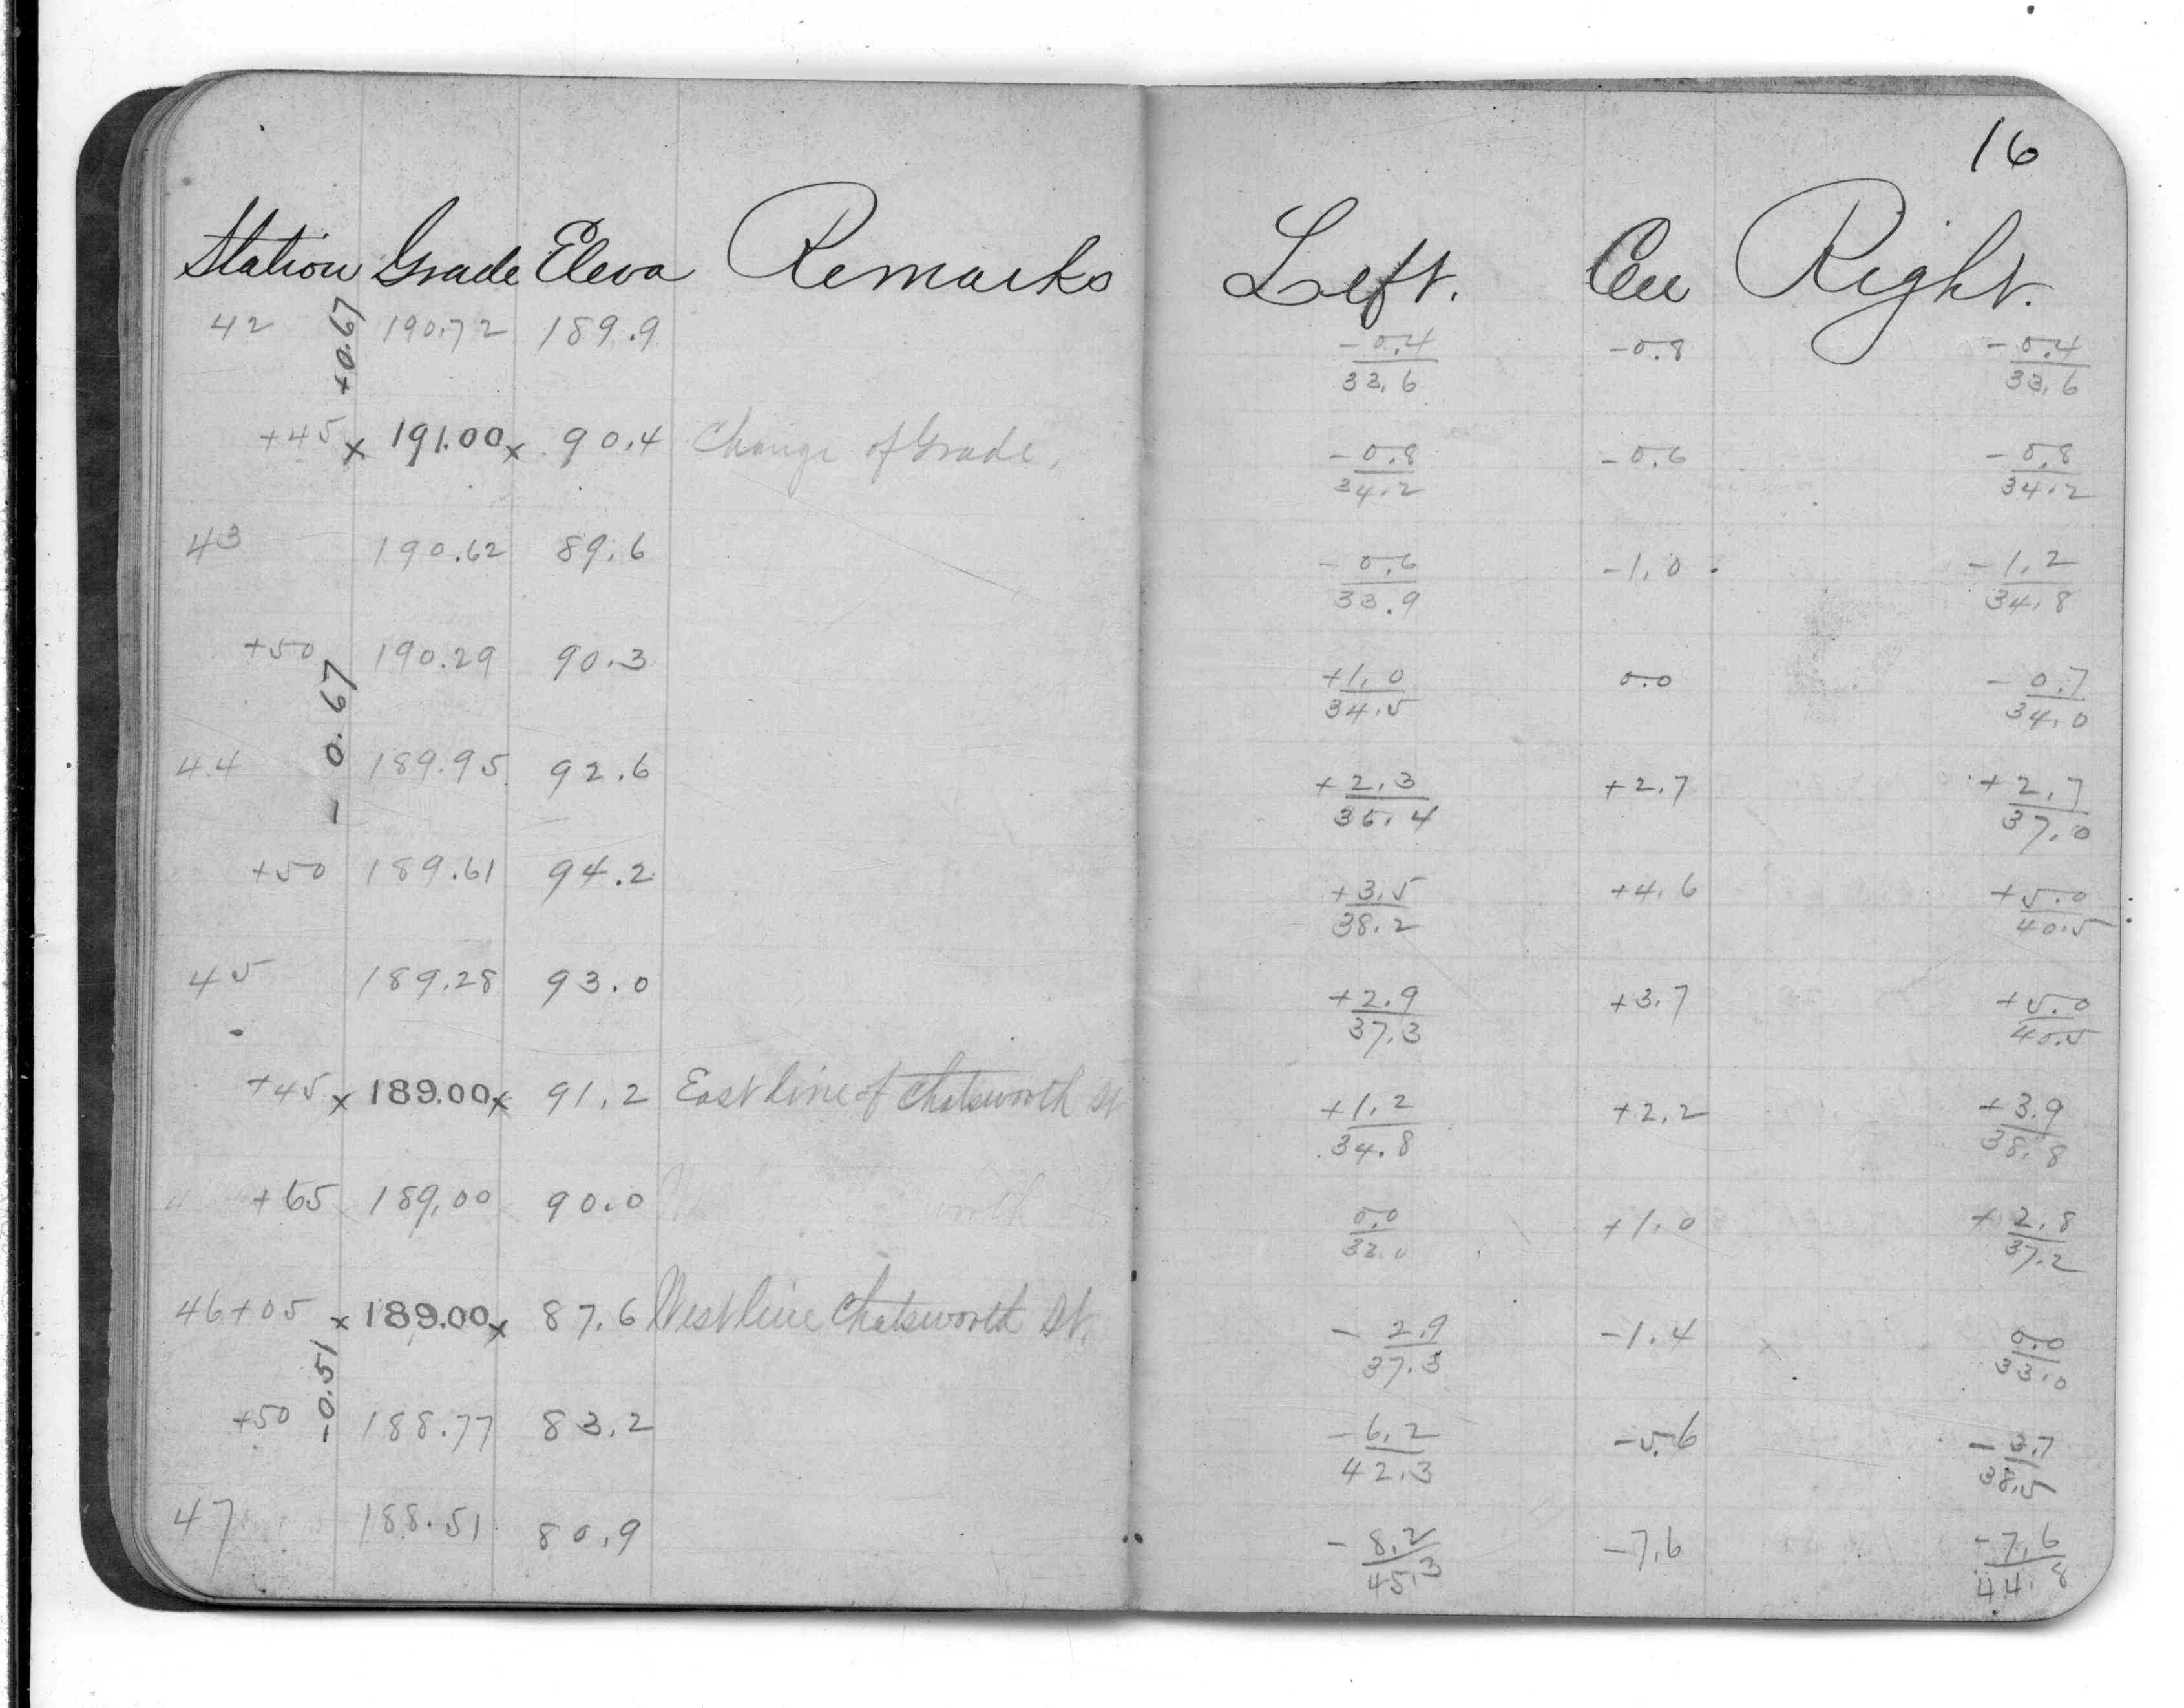 16
Station Grade Eleva Remarks Left. Cen Right.
42 190.72 189.9 -0.4/33.6 -0.8 -0.4/33.6
+0.67
+45 x 191.00 x 90.4 Change of Grade. -0.8/34.2 -0.6 -0.8/34.2
43 190.62 89.6 -0.6/33.9 -1.0 -1.2/34.8
+50 190.29 90.3 +1.0/34.5 0.0 -0.7/34.0
-0.67
44 189.95 92.6 +2.3/36.4 +2.7 +2.7/37.0
+50 189.61 94.2 +3.5/38.2 +4.6 +5.0/40.5
45 189.28 93.0 +2.9/37.3 +3.7 +5.0/40.5
+45 x 189.00 x 91.2 East line of Chatsworth St +1.2/34.8 +2.2 +3.9/38.8
+65 189.00 90.0 0.0/33.0 +1.0 +2.8/37.2
46+05 x 189.00 x 87.6 West line Chatsworth St. -2.9/37.3 -1.4 0.0/33.0
-0.51
+50 188.77 83.2 -6.2/42.3 -5.6 -3.7/38.5
47 188.51 80.9 -8.2/45.3 -7.6 -7.6/44.8